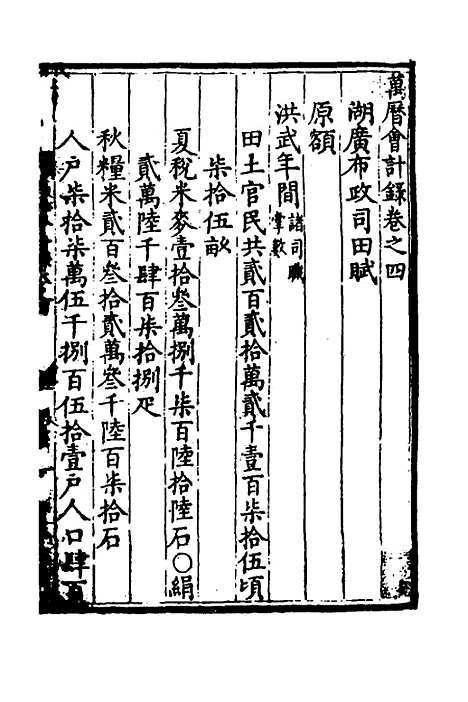 萬曆會計錄卷之四
湖廣布政司田賦
原額
洪武年間諸司職掌數
田土官民共貳百貳拾萬貳千壹百柒拾伍頃
柒拾伍畝
夏稅米麥壹拾叁萬捌千柒百陸拾陸石○絹
貳萬陸千肆百柒拾捌疋
秋糧米貳百叁拾貳萬叁千陸百柒拾石
人戶柒拾柒萬伍千捌百伍拾壹戶人口肆百